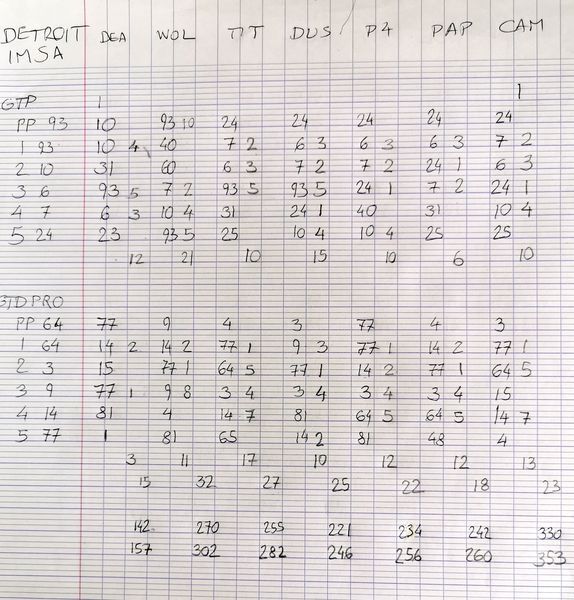 DETROIT DEA WOL TIT DUS P4 PAP CAM
IMSA
GTP 1 1
PP 93 10 93 10 24 24 24 24 24
1 93 10 4 40 7 2 6 3 6 3 6 3 7 2
2 10 31 60 6 3 7 2 7 2 24 1 6 3
3 6 93 5 7 2 93 5 93 5 24 1 7 2 24 1
4 7 6 3 10 4 31 24 1 40 31 10 4
5 24 23 93 5 25 10 4 10 4 25 25
12 21 10 15 10 6 10
GTD PRO
PP 64 77 9 4 3 77 4 3
1 64 14 2 14 2 77 1 9 3 77 1 14 2 77 1
2 3 15 77 1 64 5 77 1 14 2 77 1 64 5
3 9 77 1 9 8 3 4 3 4 3 4 3 4 15
4 14 81 4 14 7 81 64 5 64 5 14 7
5 77 1 81 65 14 2 81 48 4
3 11 17 10 12 12 13
15 32 27 25 22 18 23
142 270 255 221 234 242 330
157 302 282 246 256 260 353